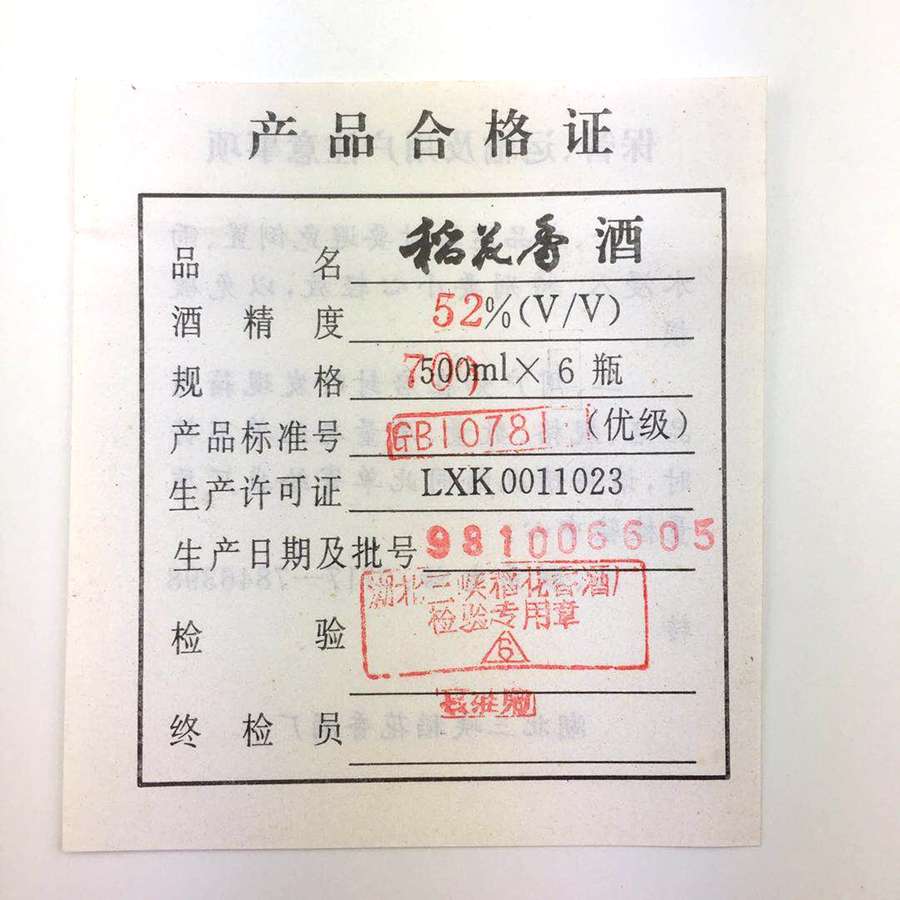 产品合格证
品名 稻花香酒
酒精度 52%(V/V)
规格 500ml×6瓶
产品标准号 GB10781 (优级)
生产许可证 LXK0011023
生产日期及批号 981006605
检验 湖北三峡稻花香酒厂
检验专用章
6
终检员